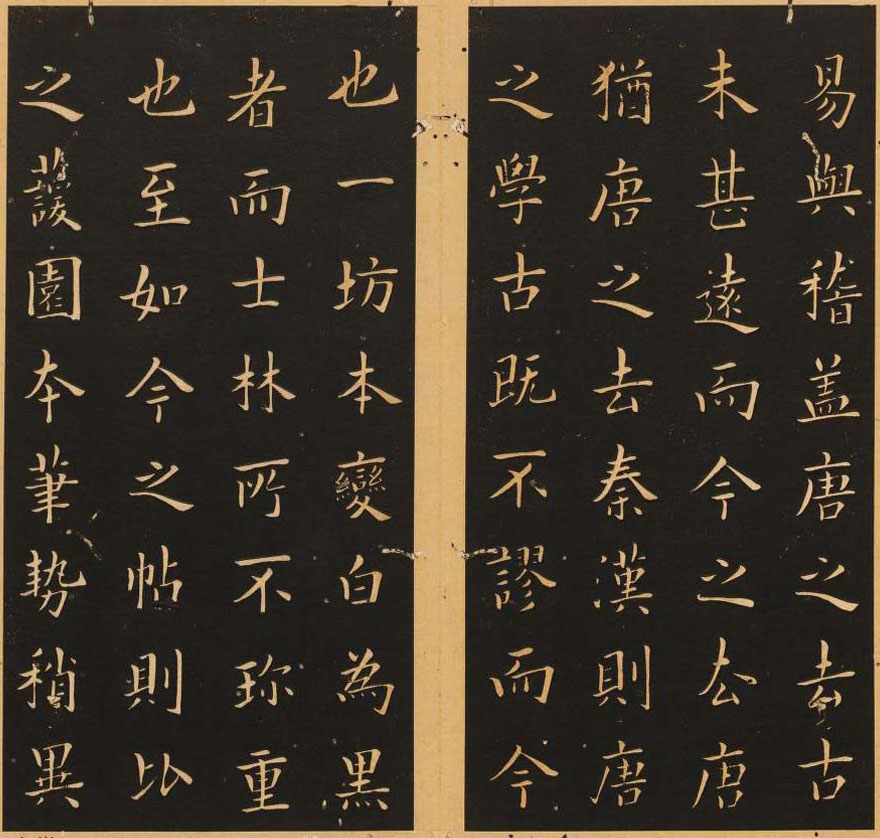 易與稽盖唐之去古
未甚遠而今之去唐
猶唐之去秦漢則唐
之學古既不謬而今
也一坊本變白為黑
者而士林所不珎重
也至如今之帖則比
之蘐園本筆勢稍異